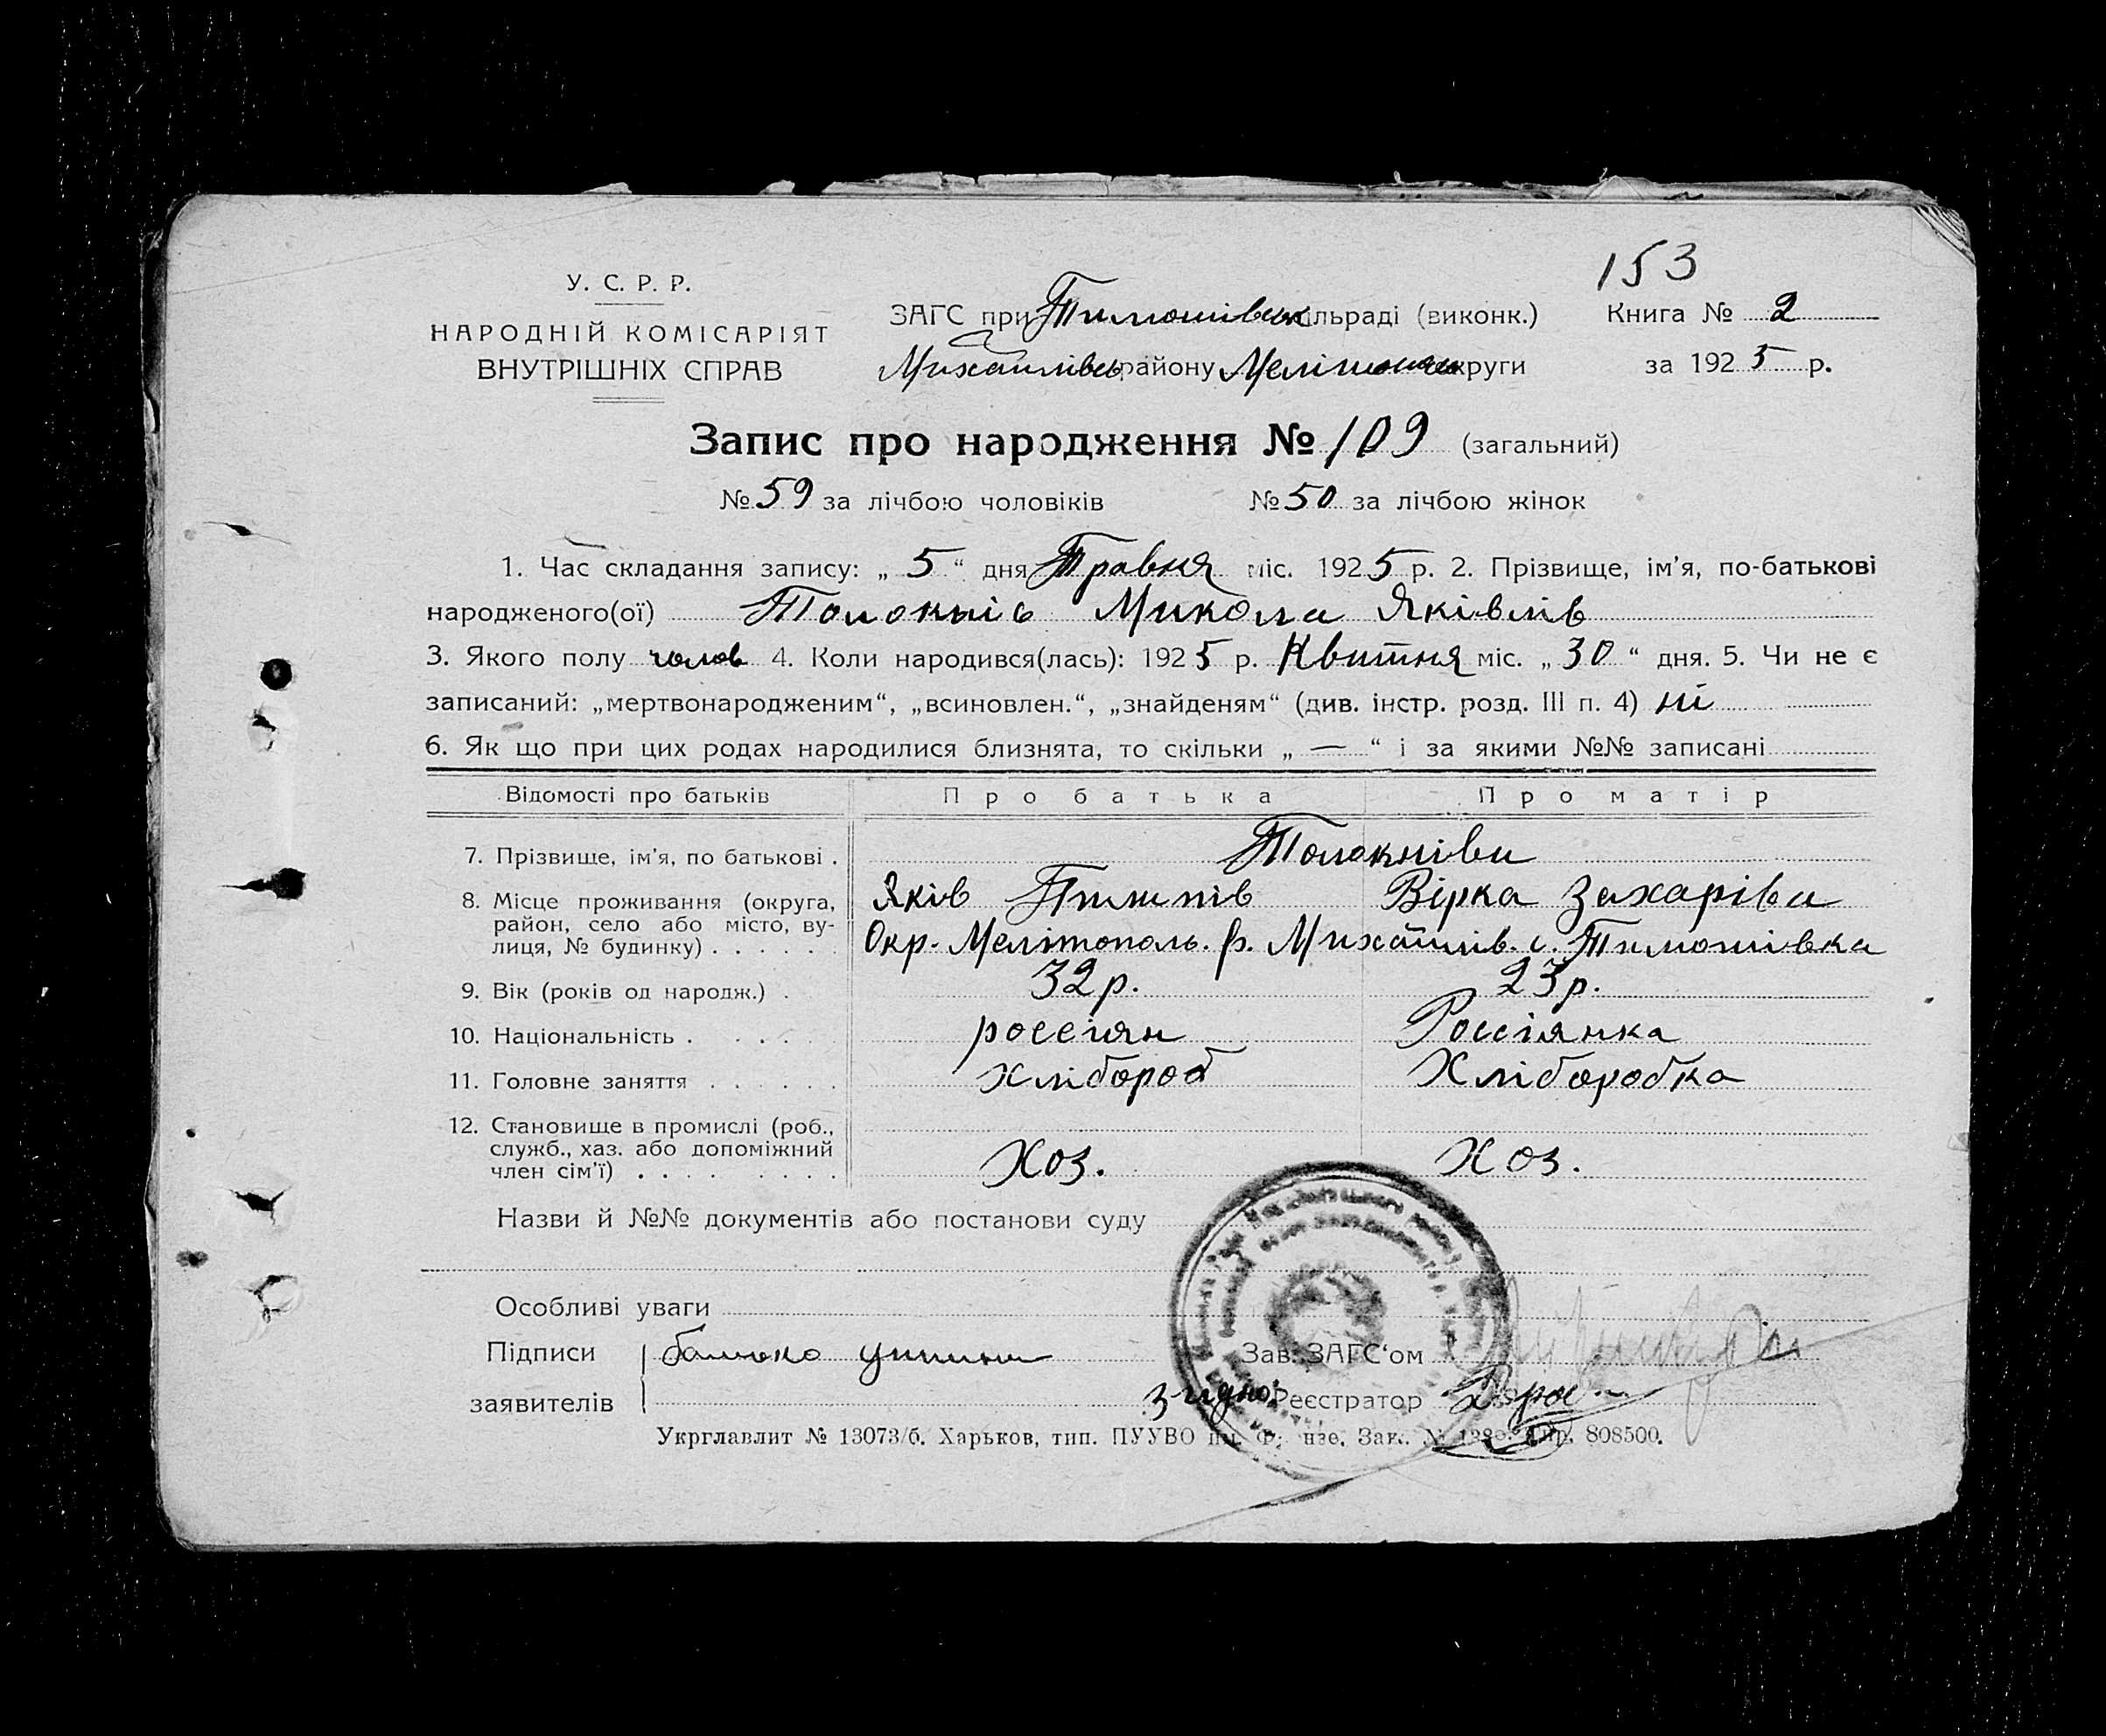 153
У. С. Р. Р.
НАРОДНІЙ КОМІСАРІЯТ
ВНУТРІШНІХ СПРАВ
ЗАГС при Тимошівськ сільраді (виконк.)
Книга № 2
Михайлівсь району Мелітопільс округи
за 1925 р.
Запис про народження № 109 (загальний)
№ 59 за лічбою чоловіків № 50 за лічбою жінок
1. Час складання запису: „ 5 “ дня Травня міс. 1925 р. 2. Прізвище, ім’я, по-батькові
народженого(ої) Толокнів Микола Яківлів
3. Якого полу чолов 4. Коли народився(лась): 1925 р. Квитня міс. „ 30 “ дня. 5. Чи не є
записаний: „мертвонародженим“, „всиновлен.“, „знайденям“ (див. інстр. розд. III п. 4) ні
6. Як що при цих родах народилися близнята, то скільки „ — “ і за якими №№ записані
Відомості про батьків Про батька Про матір
7. Прізвище, ім’я, по батькові . Толокніви
8. Місце проживання (округа, Яків Пилипів Вірка Захаріви
район, село або місто, ву-
лиця, № будинку) . . . . . . Окр. Мелітополь. р. Михайлів. с. Тимошівка
9. Вік (років од народж.) . 32 р. 23 р.
10. Національність . . . . . россіян Россіянка
11. Головне заняття . . . . . . хлібороб Хліборобка
12. Становище в промислі (роб.,
служб., хаз. або допоміжний
член сім’ї) . . . . . . . . Хоз. Хоз.
Назви й №№ документів або постанови суду
Особливі уваги
Підписи батько
Зав. ЗАГС‘ом
заявителів
Згідно: Реєстратор
Укрглавлит № 13073/б. Харьков, тип. ПУУВО Зак. № 808500.